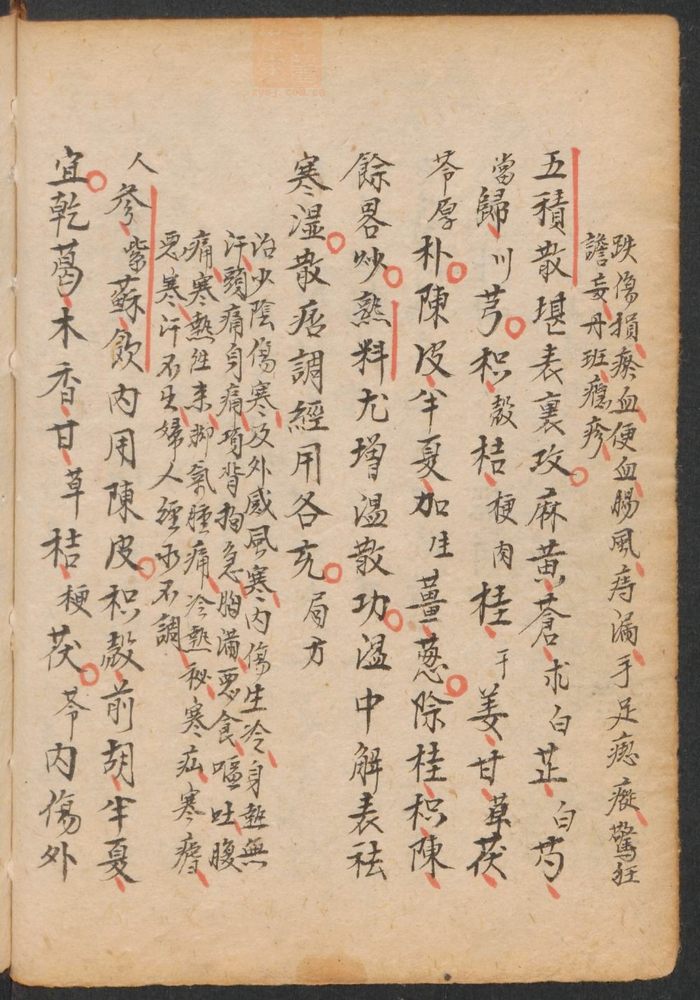 跌傷損瘀血便血腸風痔漏手足癋癡驚狂
譫妄丹班癮疹
五積散堪表裏攻麻黃蒼求白芷白芍
當歸川芎枳殼桔梗肉桂干姜甘草茯
苓厚朴陳皮半夏加生薑葱除桂枳陳
餘畧炒熟料尤增溫散功溫中解表祛
寒濕散痞調經用各充局方
治少陰傷寒及外感風寒內傷生冷身熱無
汗頭痛身痛項背拘急胸滿惡食嘔吐腹
痛寒熱往來脚氣腫痛冷熱秘寒疝寒瘧
惡寒汗不出婦人經水不調
人參紫蘇飲內用陳皮枳殼前胡半夏
宜乾葛木香甘草桔梗茯苓內傷外